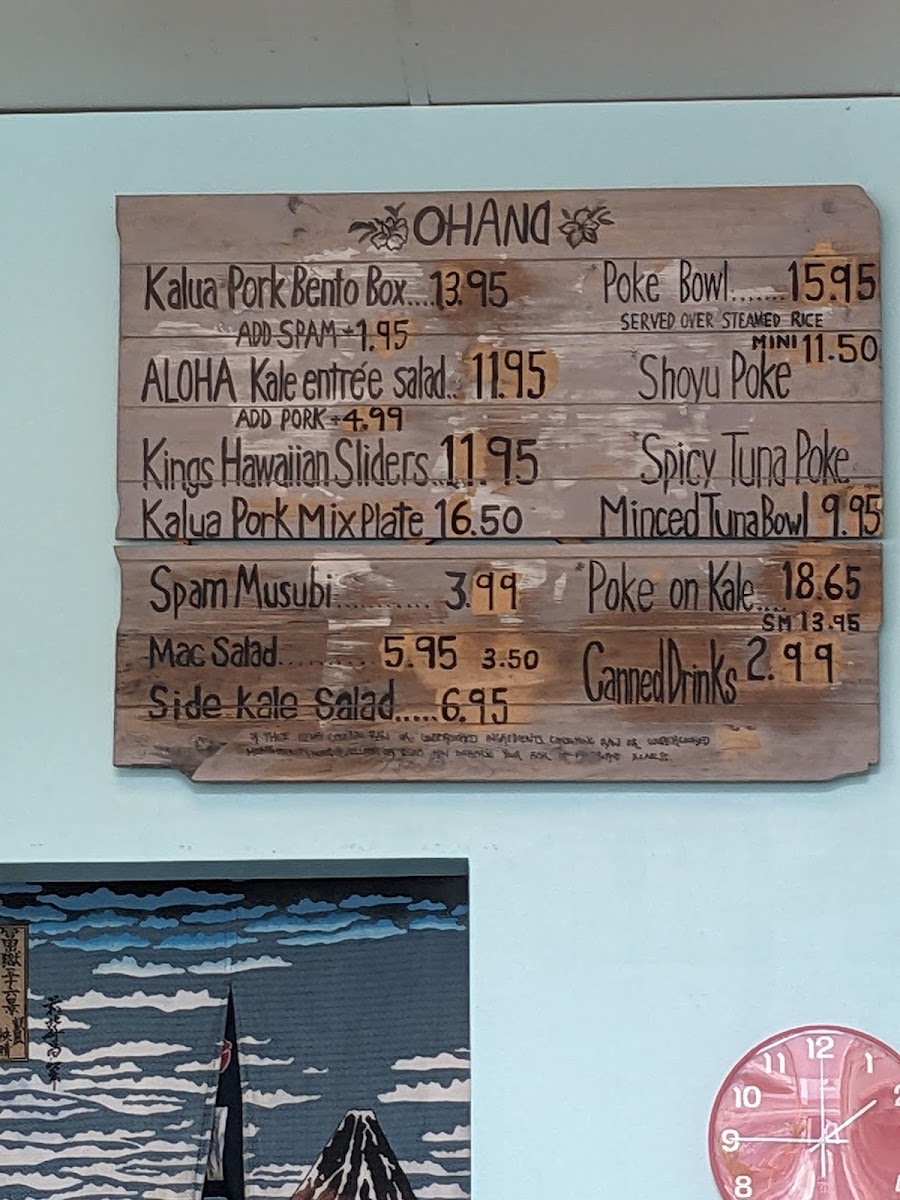 OHANA
Kalua Pork Bento Box....13.95
ADD SPAM+1.95
ALOHA Kale entrée salad..11.95
ADD PORK+4.99
Kings Hawaiian Sliders..11.95
Kalua Pork Mix Plate 16.50
Spam Musubi........... 3.99
Mac Salad.......... 5.95 3.50
Side Kale Salad.....6.95
*Poke Bowl.......15.95
SERVED OVER STEAMED RICE
MINI 11.50
Shoyu Poke
*Spicy Tuna Poke
Minced Tuna Bowl 9.95
*Poke on Kale.... 18.65
SM 13.95
Canned Drinks 2.99
RAW OR UNDERCOOKED INGREDIENTS. CONSUMING RAW OR UNDERCOOKED
12
11
1
10
2
9
8